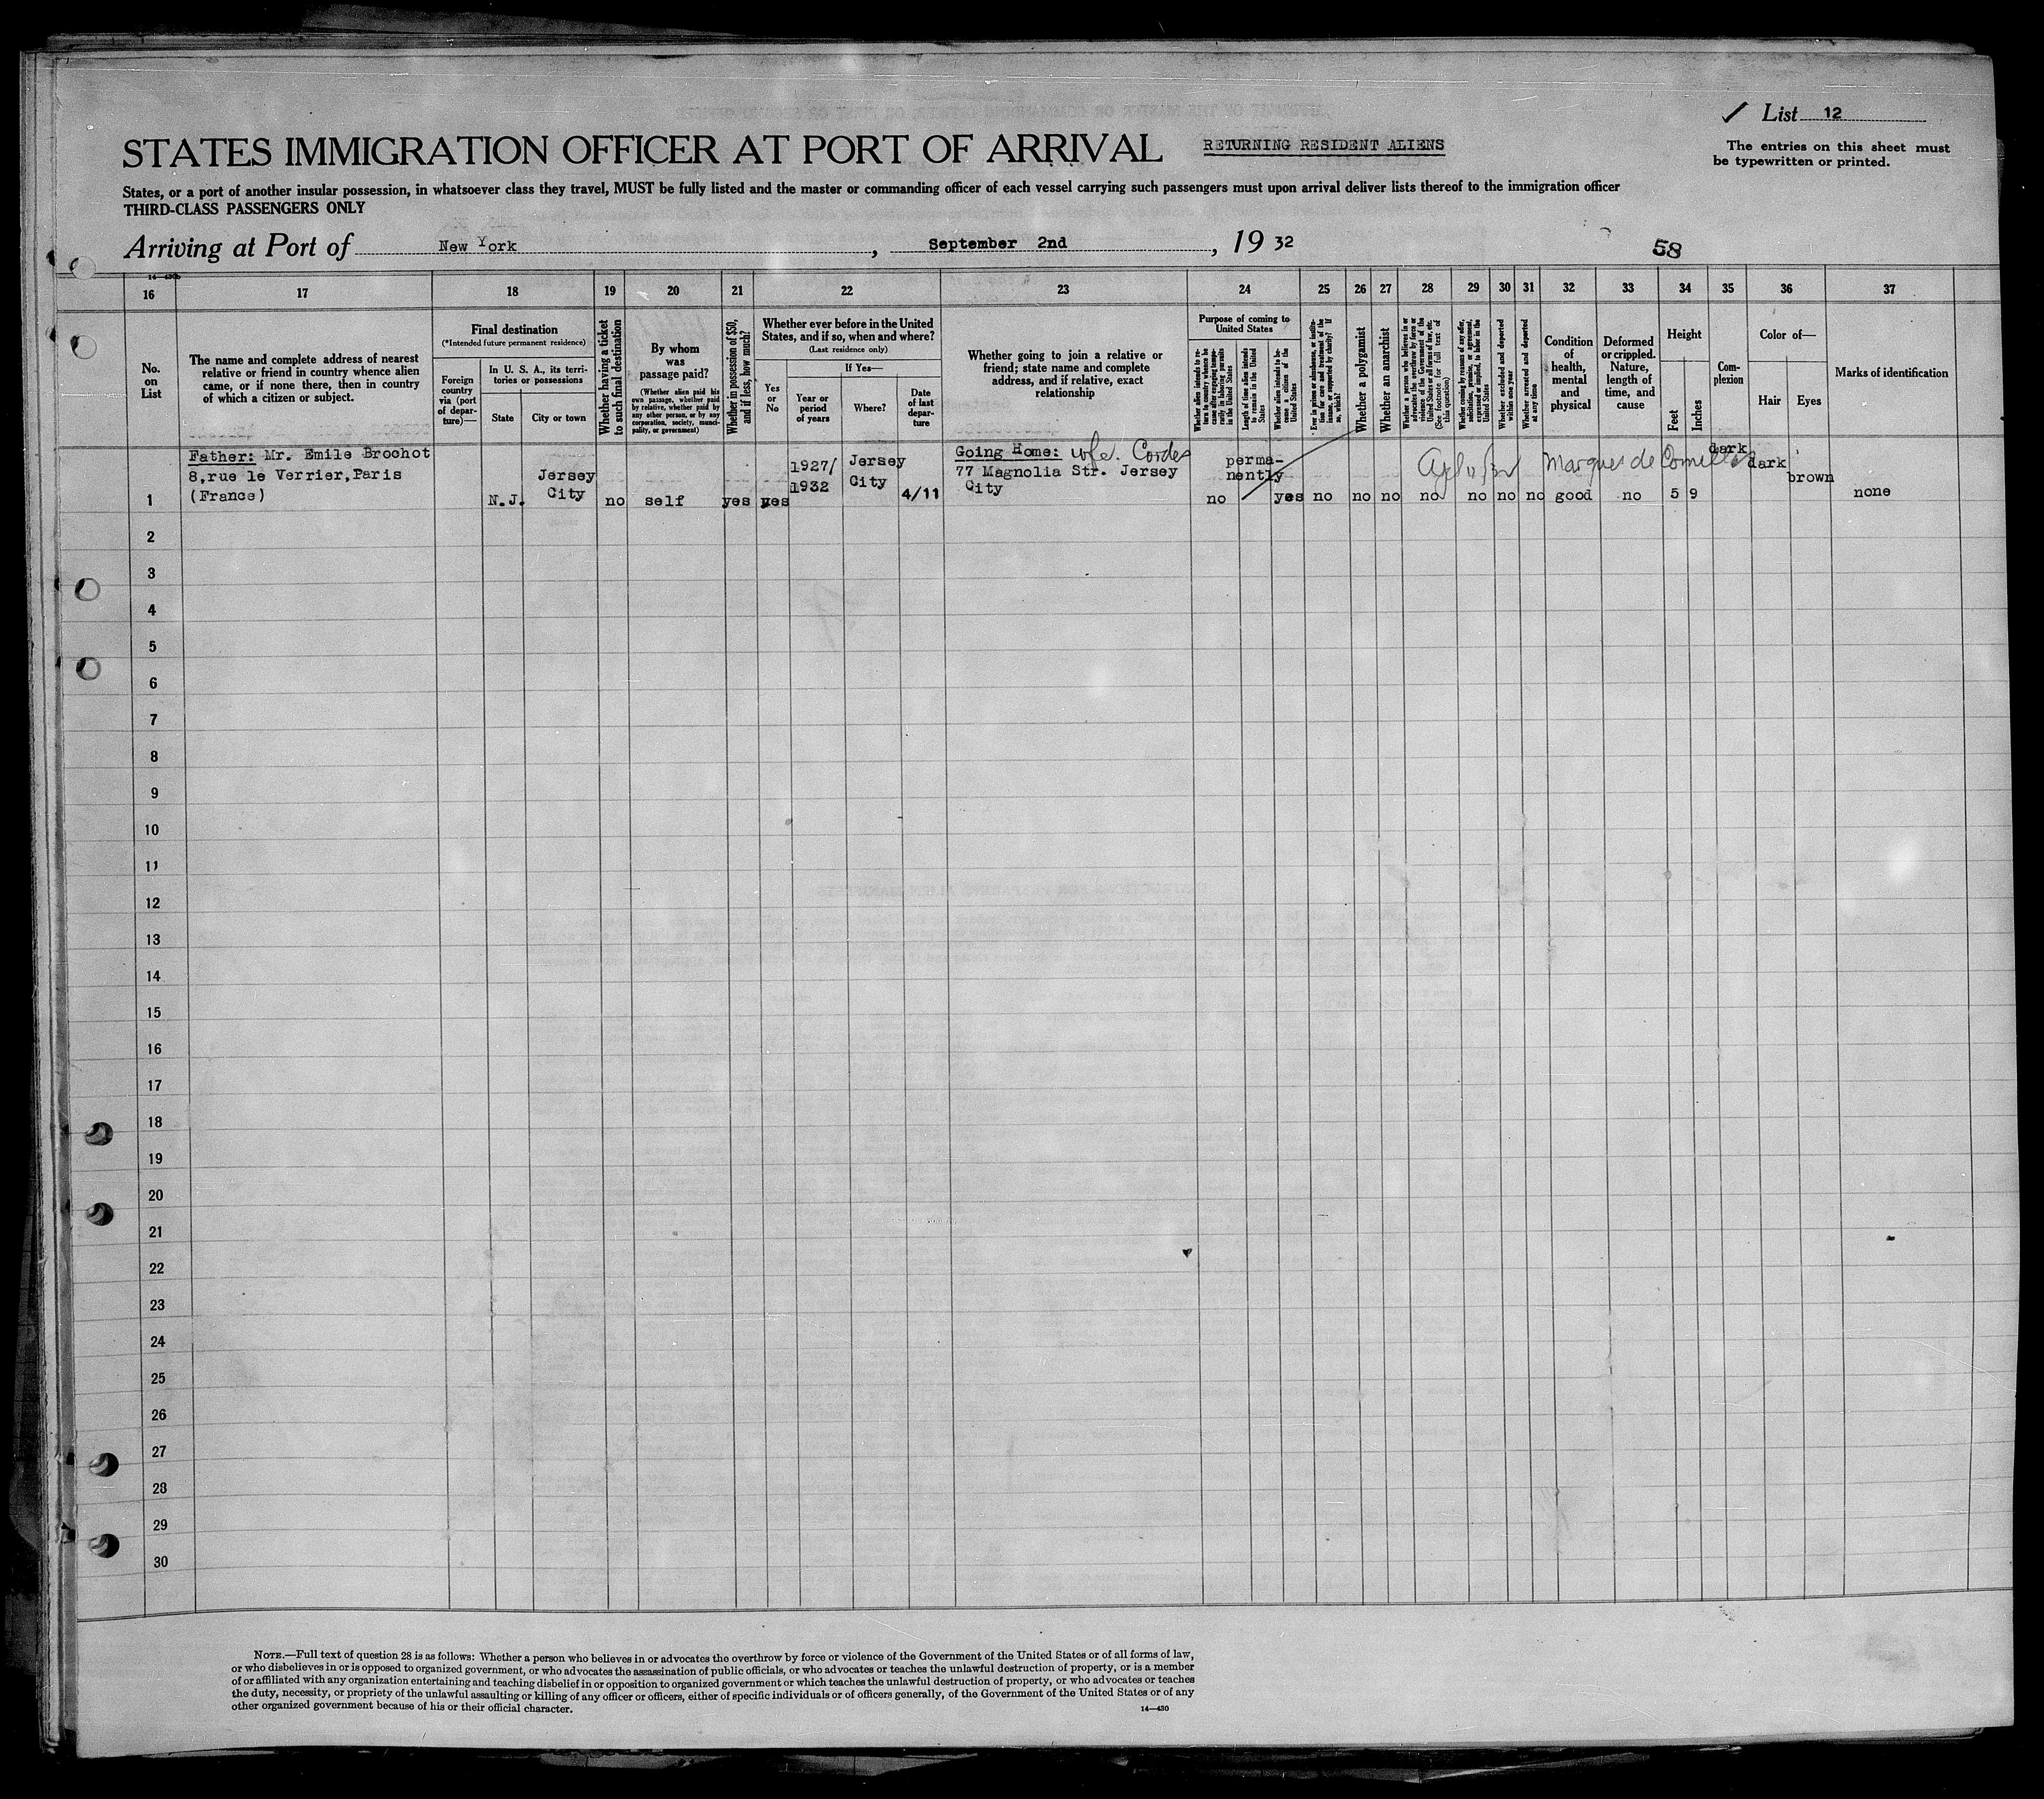 List 12
STATES IMMIGRATION OFFICER AT PORT OF ARRIVAL
RETURNING RESIDENT ALIENS
The entries on this sheet must
be typewritten or printed.
States, or a port of another insular possession, in whatsoever class they travel, MUST be fully listed and the master or commanding officer of each vessel carrying such passengers must upon arrival deliver lists thereof to the immigration officer
THIRD-CLASS PASSENGERS ONLY
Arriving at Port of New York, September 2nd, 19 32
58
16 17 18 19 20 21 22 23 24 25 26 27 28 29 30 31 32 33 34 35 36 37
No.
on
List
The name and complete address of nearest
relative or friend in country whence alien
came, or if none there, then in country
of which a citizen or subject.
Final destination
(*Intended future permanent residence)
Foreign
country
via (port
of depar-
ture)—
In U. S. A., its terri-
tories or possessions
State
City or town
Whether having a ticket
to such final destination
By whom
was
passage paid?
(Whether alien paid his
own passage, whether paid
by relative, whether paid by
any other person, or by any
corporation, society, munici-
pality, or government)
Whether in possession of $50,
and if less, how much?
Whether ever before in the United
States, and if so, when and where?
(Last residence only)
Yes
or
No
If Yes—
Year or
period
of years
Where?
Date
of last
depar-
ture
Whether going to join a relative or
friend; state name and complete
address, and if relative, exact
relationship
Purpose of coming to
United States
Whether alien intends to re-
turn to country whence he
came after engaging tempo-
rarily in laboring pursuits
in the United States
Length of time alien intends
to remain in the United
States
Whether alien intends to be-
come a citizen of the
United States
Ever in prison or almshouse, or institu-
tion for care and treatment of the
insane, or supported by charity? If
so, which?
Whether a polygamist
Whether an anarchist
Whether a person who believes in or
advocates the overthrow by force or
violence of the Government of the
United States or all forms of law, etc.
(See footnote for full text of
this question)
Whether coming by reasons of any offer,
solicitation, promise, or agreement,
expressed or implied, to labor in the
United States
Whether excluded and deported
within one year
Whether arrested and deported
at any time
Condition
of
health,
mental
and
physical
Deformed
or crippled.
Nature,
length of
time, and
cause
Height
Feet
Inches
Com-
plexion
Color of—
Hair
Eyes
Marks of identification
Father: Mr. Emile Brochot
8,rue le Verrier,Paris
(France)
1
N.J.
Jersey
City
no
self
yes
yes
1927/
1932
Jersey
City
4/11
Going Home: wife. Cordes
77 Magnolia Str. Jersey
City
no
perma-
nently
yes no no no no no no no good no 5 9
Marques de Comillas
dark
dark
brown
none
2
3
4
5
6
7
8
9
10
11
12
13
14
15
16
17
18
19
20
21
22
23
24
25
26
27
28
29
30
NOTE.—Full text of question 28 is as follows: Whether a person who believes in or advocates the overthrow by force or violence of the Government of the United States or of all forms of law,
or who disbelieves in or is opposed to organized government, or who advocates the assassination of public officials, or who advocates or teaches the unlawful destruction of property, or is a member
of or affiliated with any organization entertaining and teaching disbelief in or opposition to organized government or which teaches the unlawful destruction of property, or who advocates or teaches
the duty, necessity, or propriety of the unlawful assaulting or killing of any officer or officers, either of specific individuals or of officers generally, of the Government of the United States or of any
other organized government because of his or their official character.
14—430